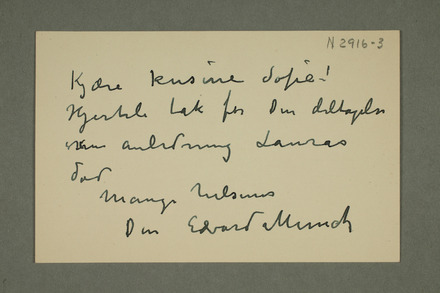 N 2916-3
Kjære kusine Sofie!
Hjertelig tak for Din deltagelse
anledning Lauras
død
Mange hilsener
Din Edvard Munch